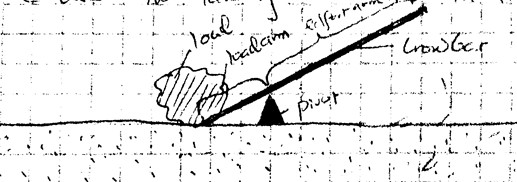 load
loadarm
effort arm
(row)bar
pivot